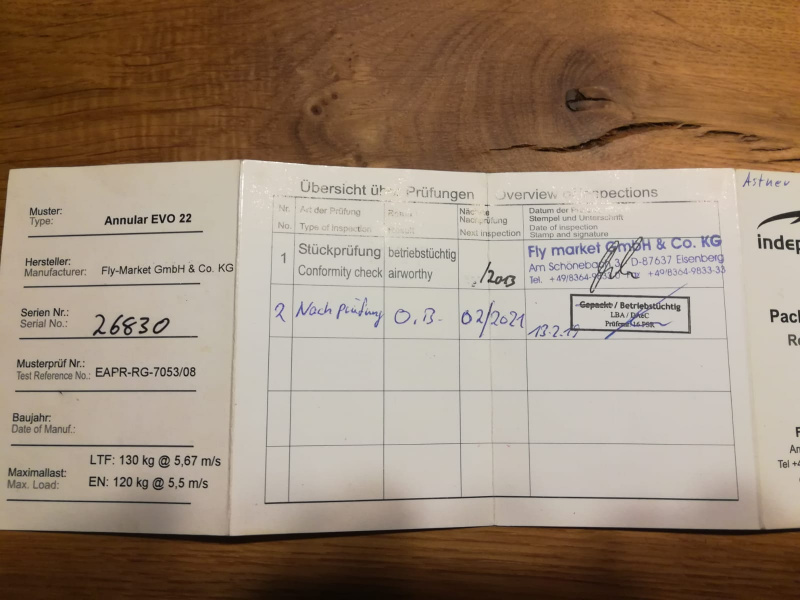 Muster:
Type: Annular EVO 22
Hersteller:
Manufacturer: Fly-Market GmbH & Co. KG
Serien Nr.:
Serial No.: 26830
Musterprüf Nr.:
Test Reference No.: EAPR-RG-7053/08
Baujahr:
Date of Manuf.:
Maximallast: LTF: 130 kg @ 5,67 m/s
Max. Load: EN: 120 kg @ 5,5 m/s
Übersicht Prüfungen Overview of Inspections
Nr. Art der Prüfung
No. Type of inspection
Nachprüfung
Next inspection
Datum der
Stempel und Unterschrift
Date of inspection
Stamp and signature
1 Stückprüfung betriebstüchtig
Conformity check airworthy
/2013
Fly market GmbH & Co. KG
Am Schönebach 3, D-87637 Eisenberg
Tel. +49/8364-9833-0 +49/8364-9833-33
2 Nachprüfung O.B. 02/2021 13.2.19
Gepackt / Betriebstüchtig
LBA / DAeC
Astner
indep
Pac
Re
Tel +4